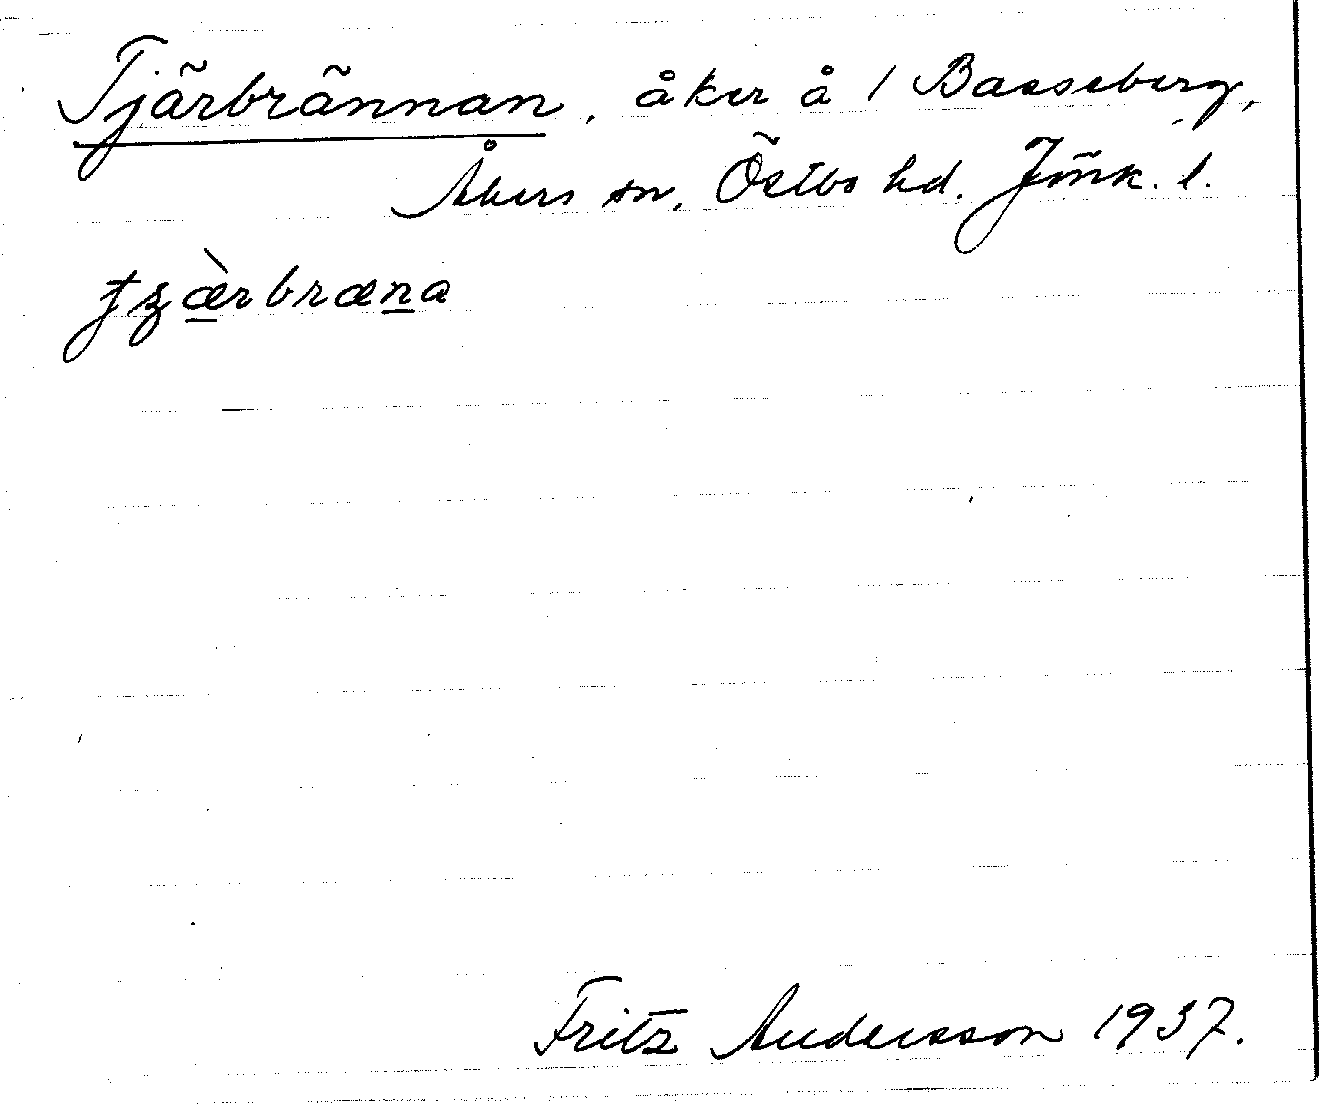 Tjärbrännan, åker å 1 Basseberg,
Åkers sn, Östbo hd. Jönk. l.
tʒæ̀rbræna
Fritz Andersson 1937.